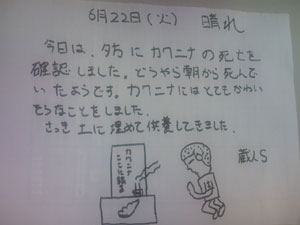 6月22日(火) 晴れ
今日は、夕方にカワニナの死亡を
確認しました。どうやら朝から死んで
いたようです。カワニナにはとてもかわい
そうなことをしました。
さっき土に埋めて供養してきました。
蔵人S
カワニナ
ここに眠る